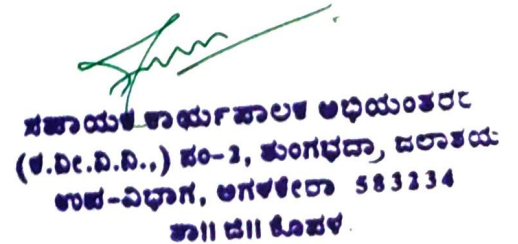 ಸಹಾಯಕ ಕಾರ್ಯಪಾಲಕ ಅಭಿಯಂತರರ
(ಕ.ನೀ.ನಿ.ನಿ.,) ನಂ-2, ತುಂಗಭದ್ರಾ ಜಲಾಶಯ
ಉಪ-ವಿಭಾಗ, ಅಗಳಕೇರಾ 583234
ತಾ|| ಜಿ|| ಕೊಪಳ